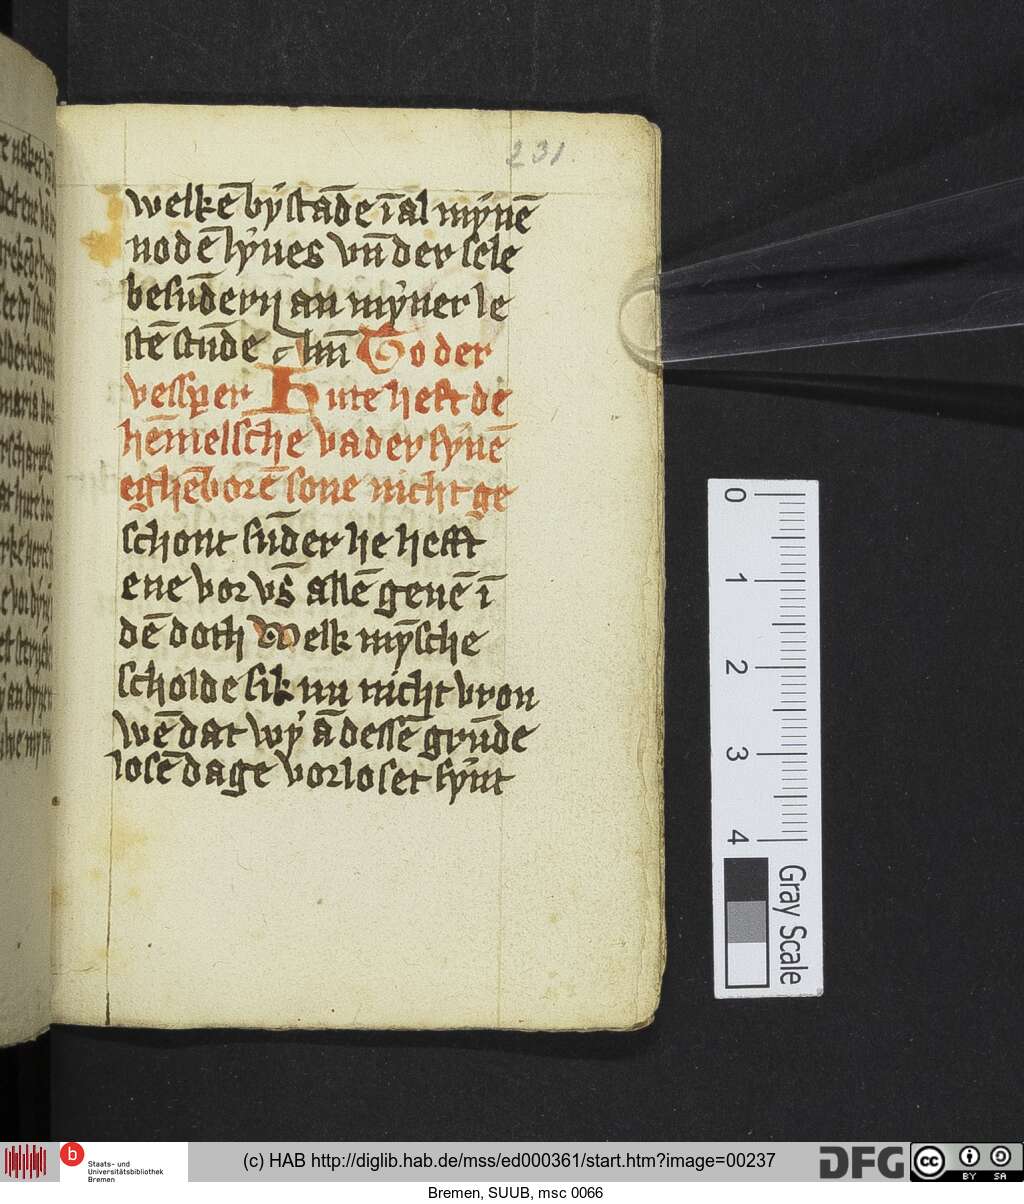 231
welkē bÿstādē ī al mÿnē
nodē lÿues vn̄ der sele
besūdern an mÿner le
stē stūde Am̄ To der
vessper Hute heft de
hēmelsche vader sÿnē
eghēborē sone nicht ge
schont sūder he hefft
ene vor vs̄ allē geuē ī
dē doth Welk mȳsche
scholde sik nu nicht vron
wē dat wÿ ā dessē grūde
losē dage vorloset sÿnt
0
1
2
3
4
Gray Scale
b
Staats- und
Universitätsbibliothek
Bremen
(c) HAB http://diglib.hab.de/mss/ed000361/start.htm?image=00237
DFG
cc
BY SA
Bremen, SUUB, msc 0066